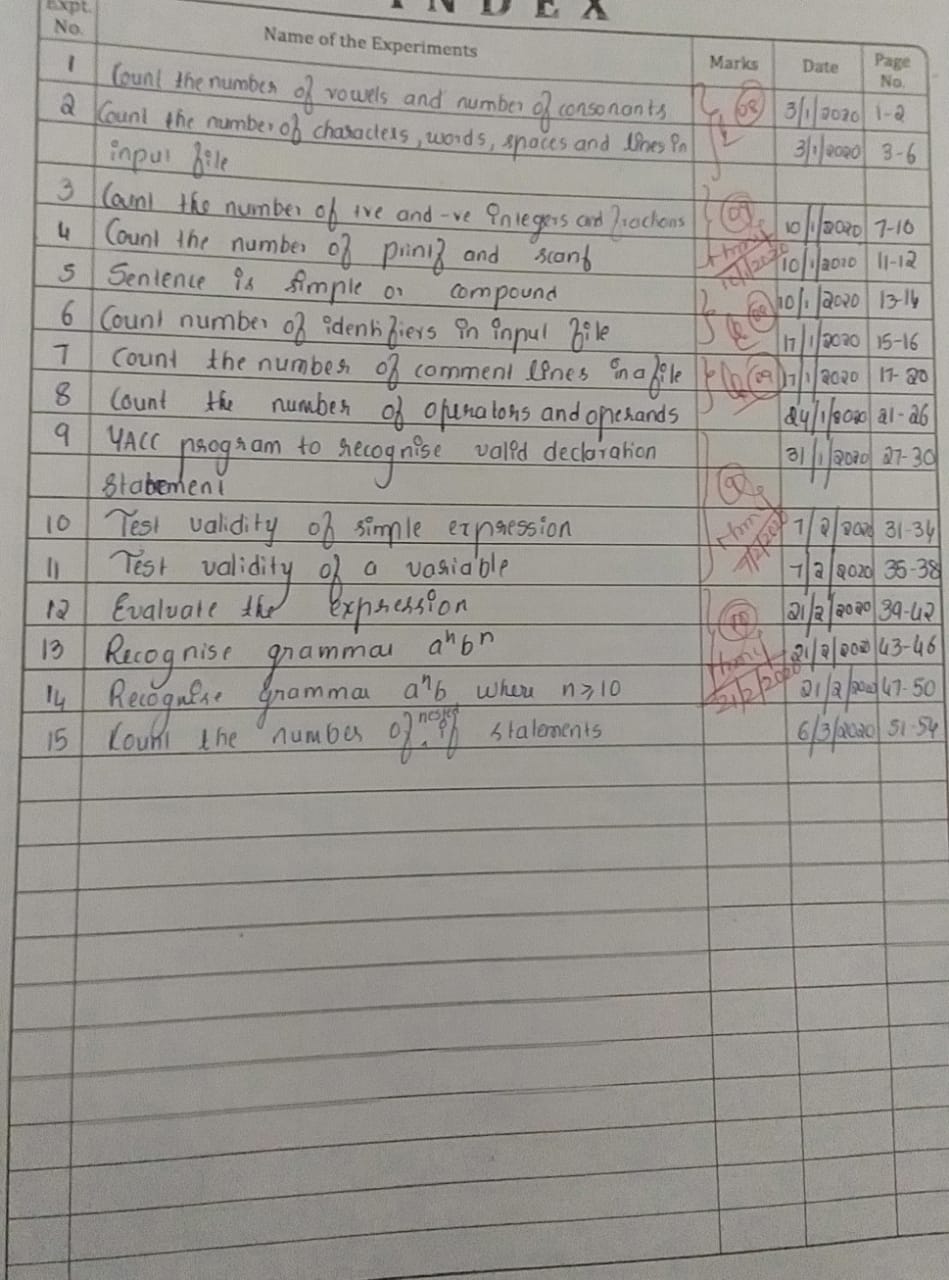 INDEX
Expt. No. Name of the Experiments Marks Date Page No.
1 Count the number of vowels and number of consonants 08 3/1/2020 1-2
2 Count the number of characters, words, spaces and lines in 3/1/2020 3-6
input file
3 Count the number of +ve and -ve integers and fractions 09 10/1/2020 7-10
4 Count the number of printf and scanf 10/1/2020 10/1/2020 11-12
5 Sentence is simple or compound 10/1/2020 13-14
6 Count number of identifiers in input file 17/1/2020 15-16
7 Count the number of comment lines in a file 09 17/1/2020 17-20
8 Count the number of operators and operands 24/1/2020 21-26
9 YACC program to recognise valid declaration 31/1/2020 27-30
Statement
10 Test validity of simple expression 7/2/2020 7/2/2020 31-34
11 Test validity of a variable 7/2/2020 35-38
12 Evaluate the expression 21/2/2020 39-42
13 Recognise grammar aⁿbⁿ 21/2/2020 43-46
14 Recognise grammar aⁿb where n≥10 21/2/2020 21/2/2020 47-50
15 Count the number of nested if statements 6/3/2020 51-54